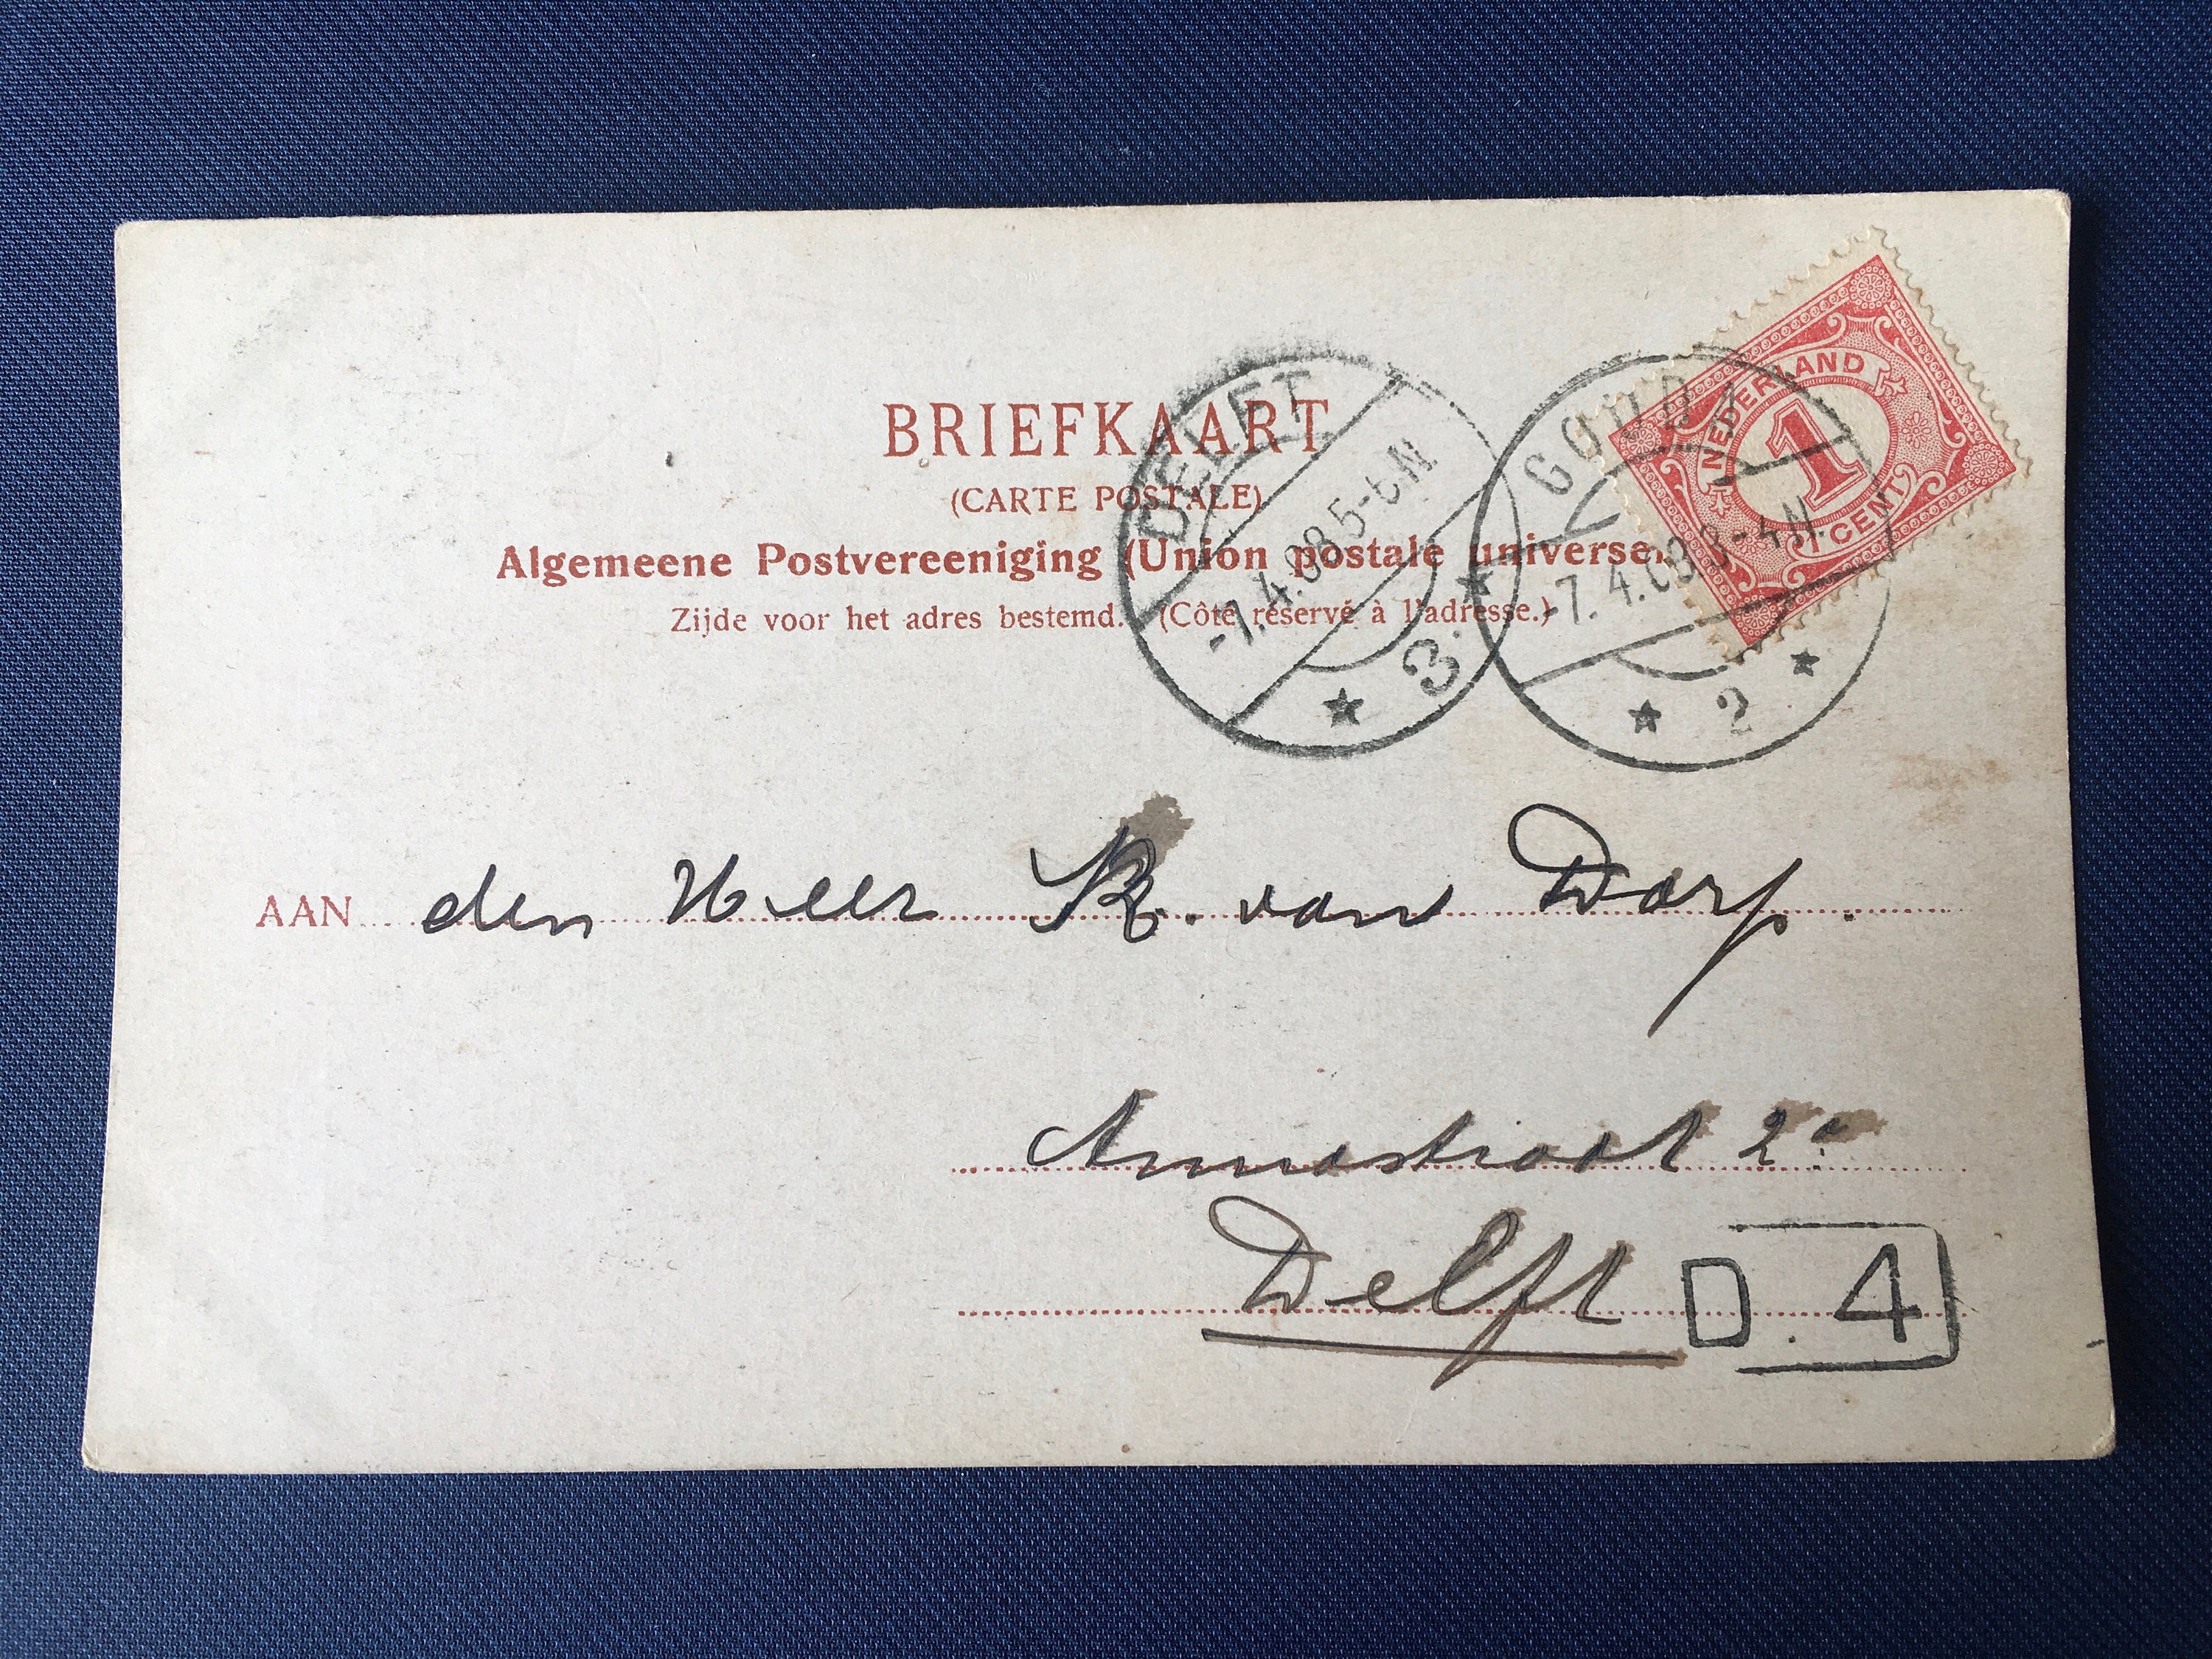 BRIEFKAART
(CARTE POSTALE)
Algemeene Postvereeniging (Union postale universel
Zijde voor het adres bestemd. (Côté réservé à l'adresse.)
DELFT
-7.4.08 5-6N
3
GOUDA
-7.4.08 3-4N
2
NEDERLAND
1
1 CENT
AAN den Heer K. van Dorp.
Annastraat 2a
Delft
D. 4